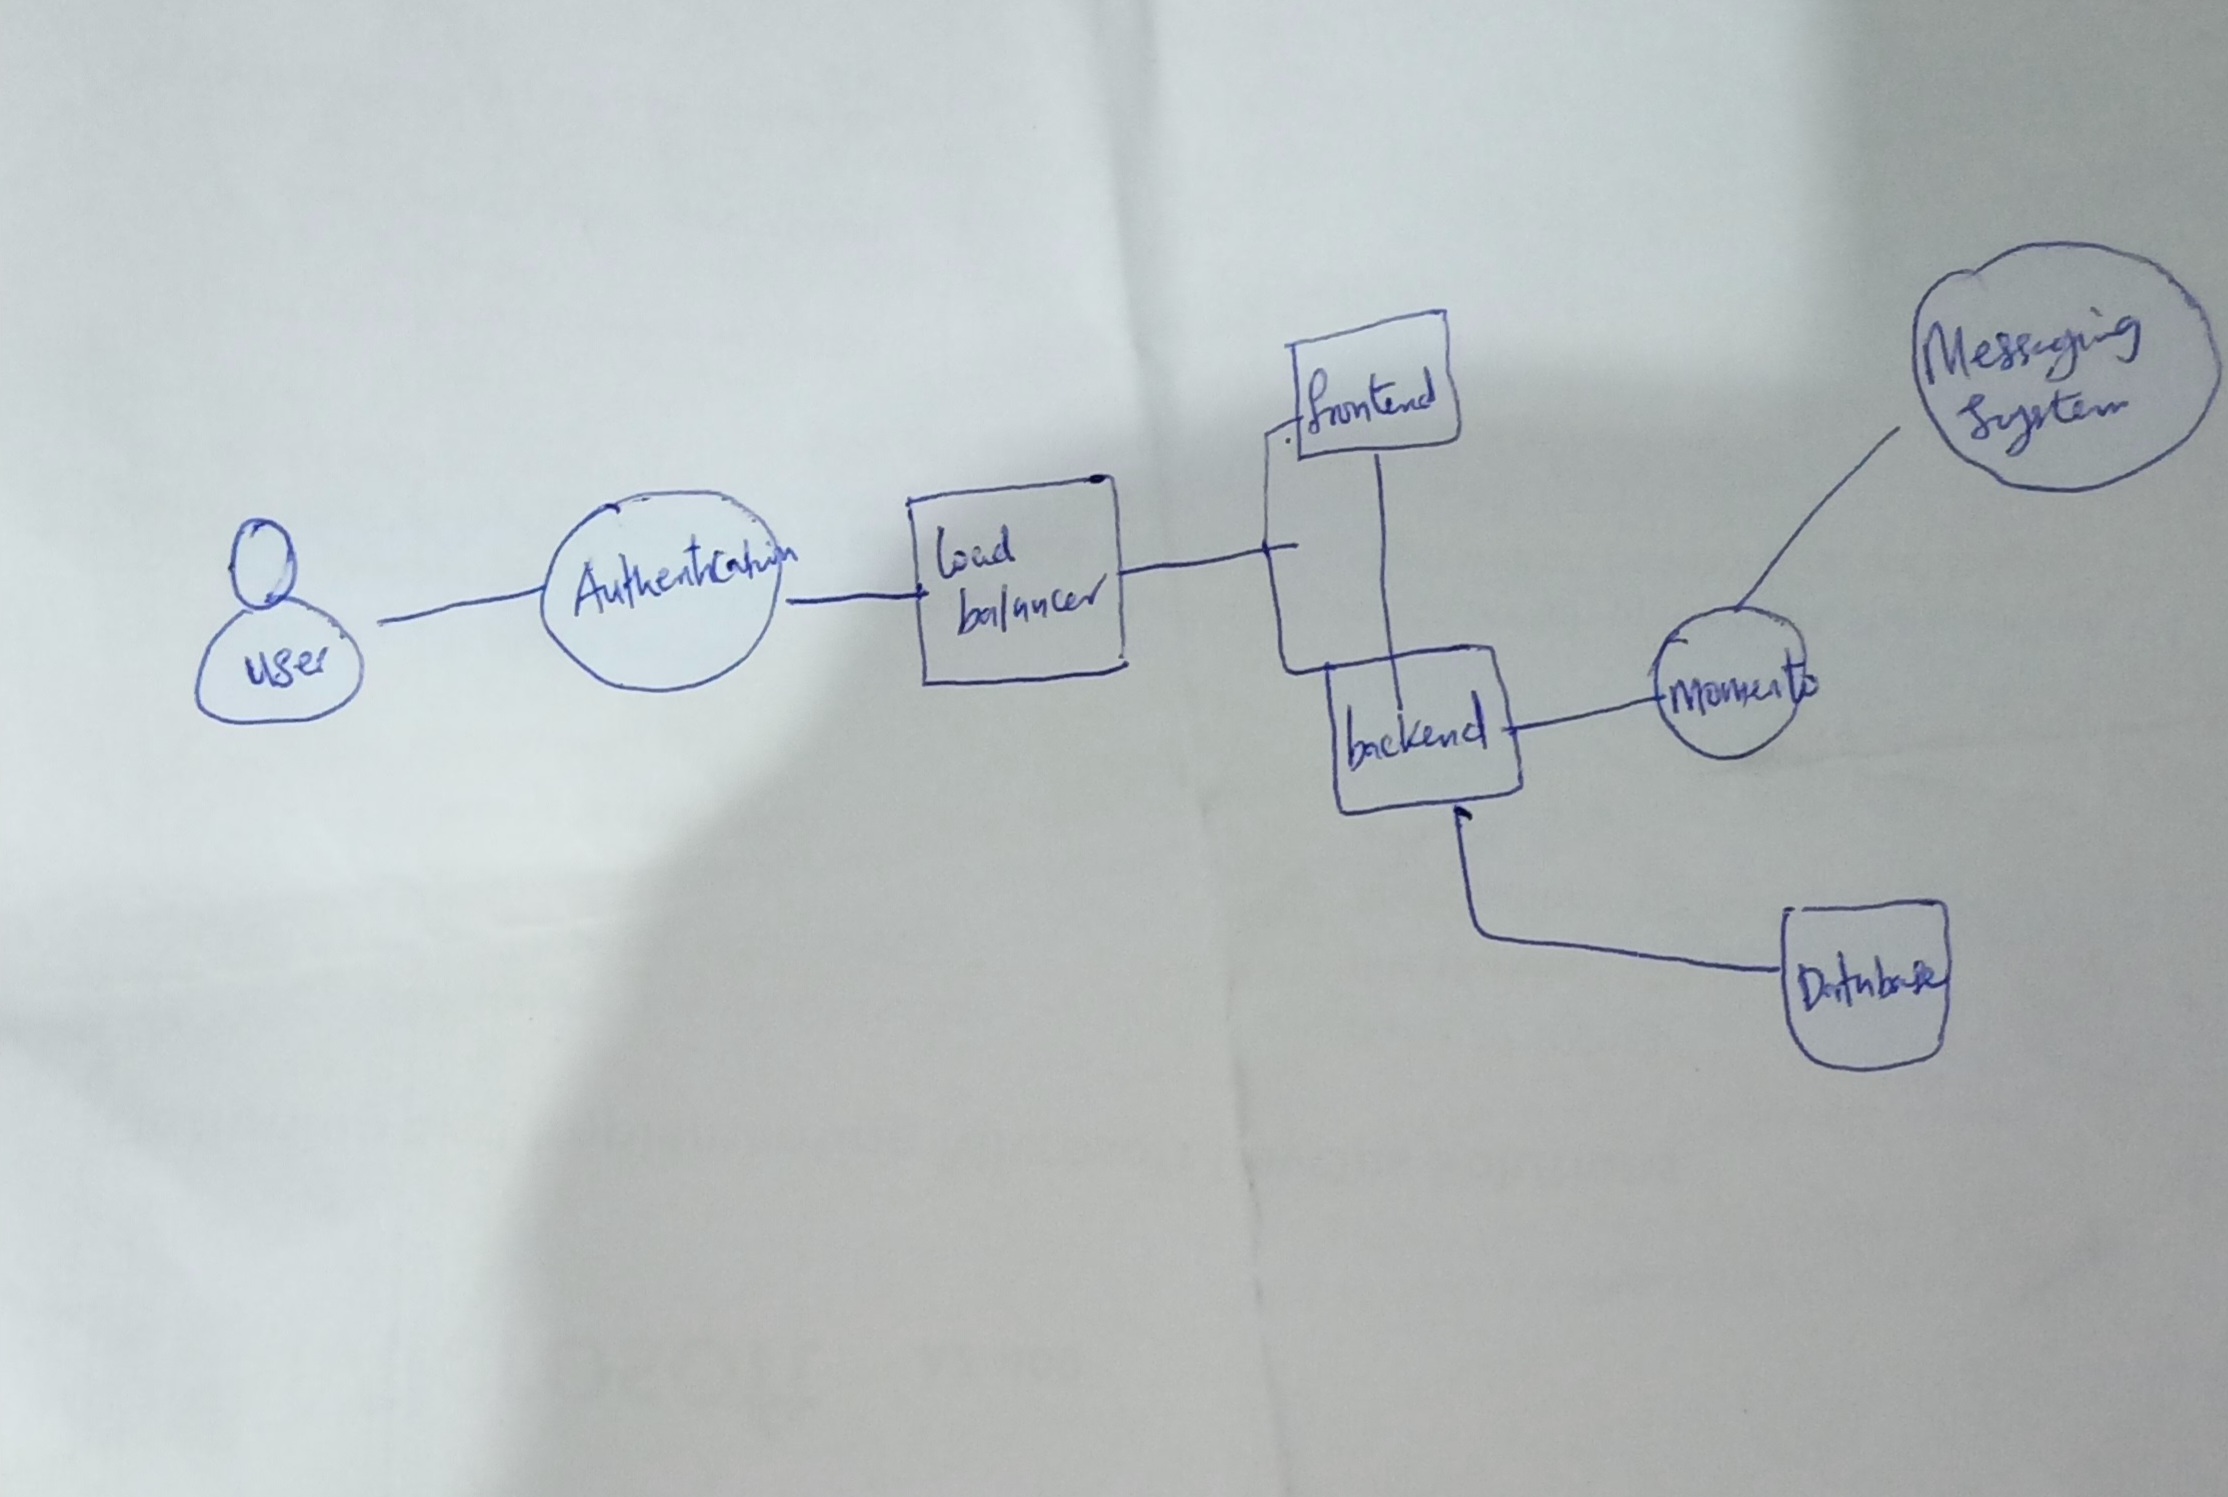 user
Authentication
load
balancer
frontend
backend
Momento
Messaging
System
Database